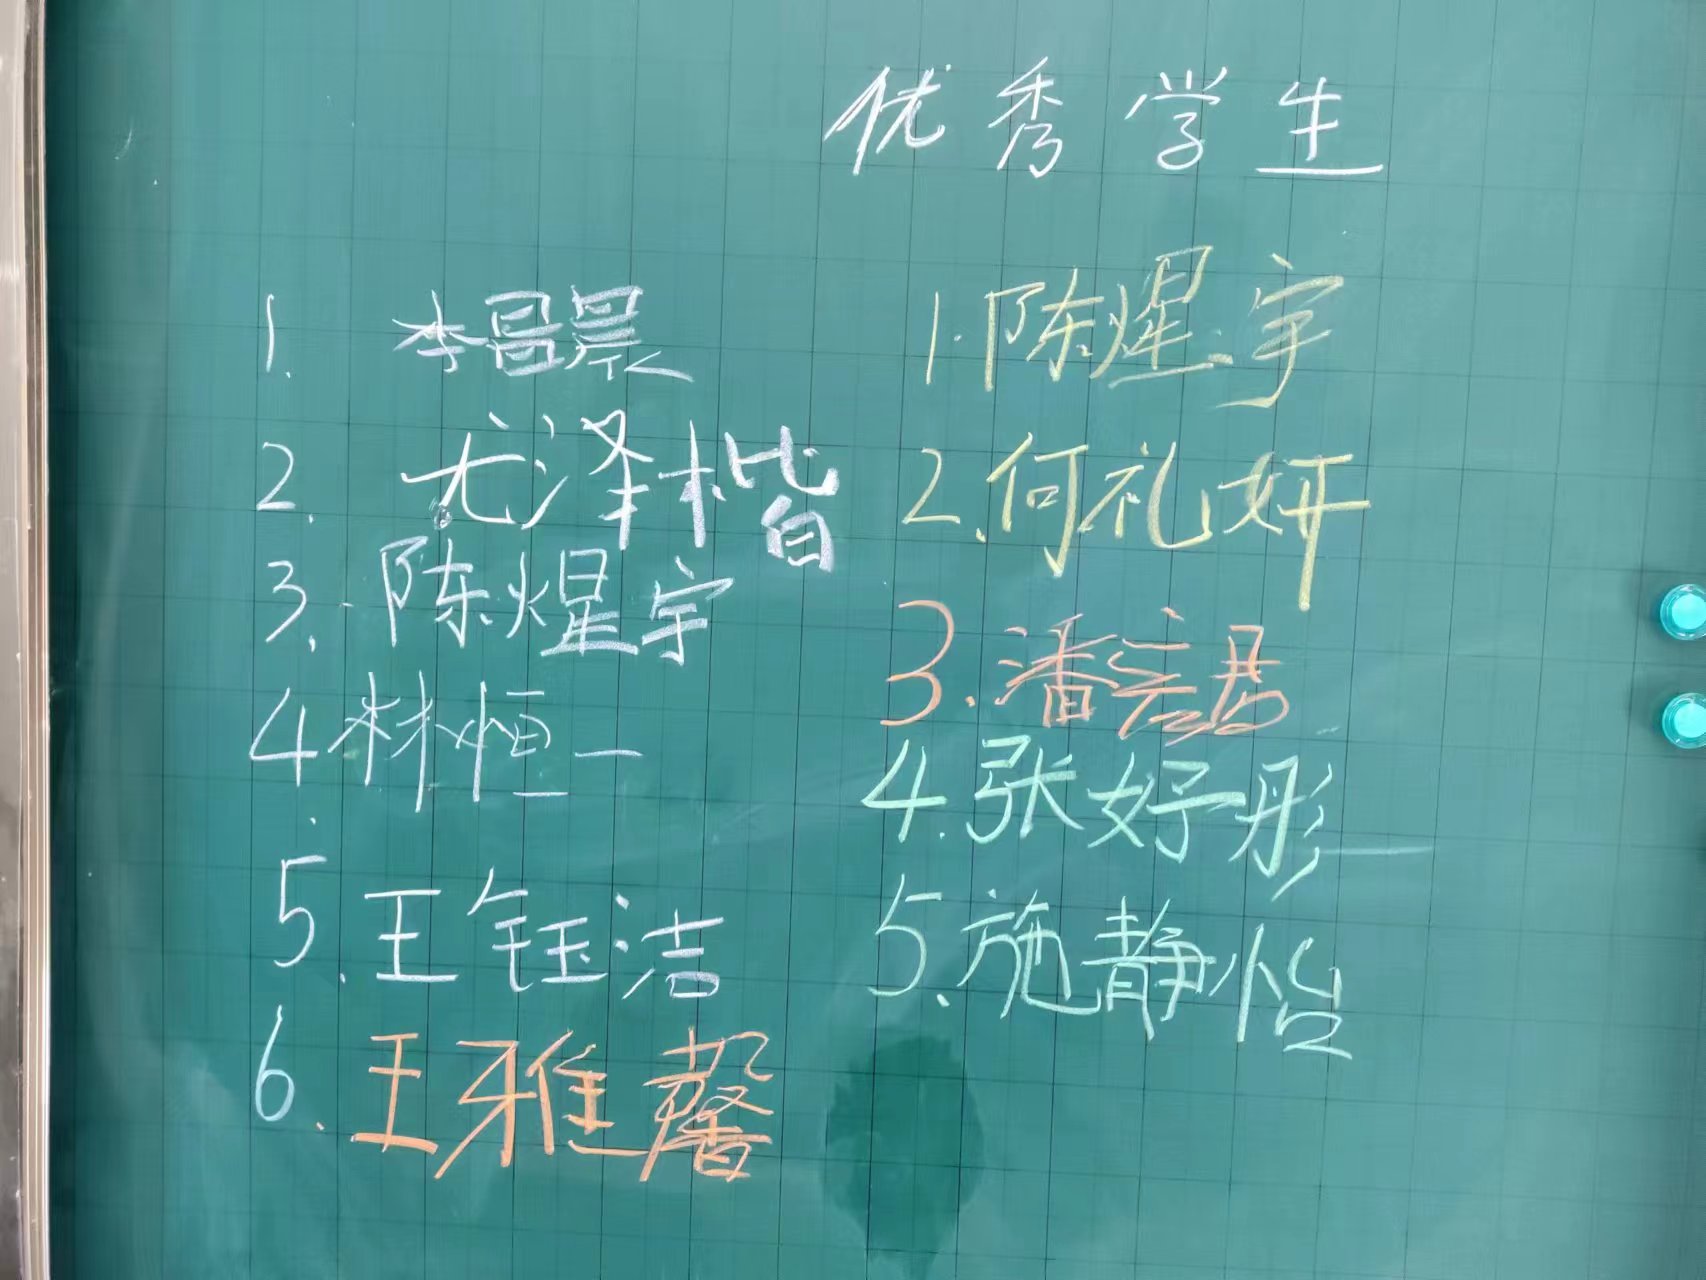 优秀学生
1. 李昌晨
2. 尤泽楷
3. 陈煋宇
4 林恒一
5. 王钰洁
6. 王雅馨
1. 陈煋宇
2. 何礼妍
3. 潘宗君
4. 张妤彤
5. 施静怡